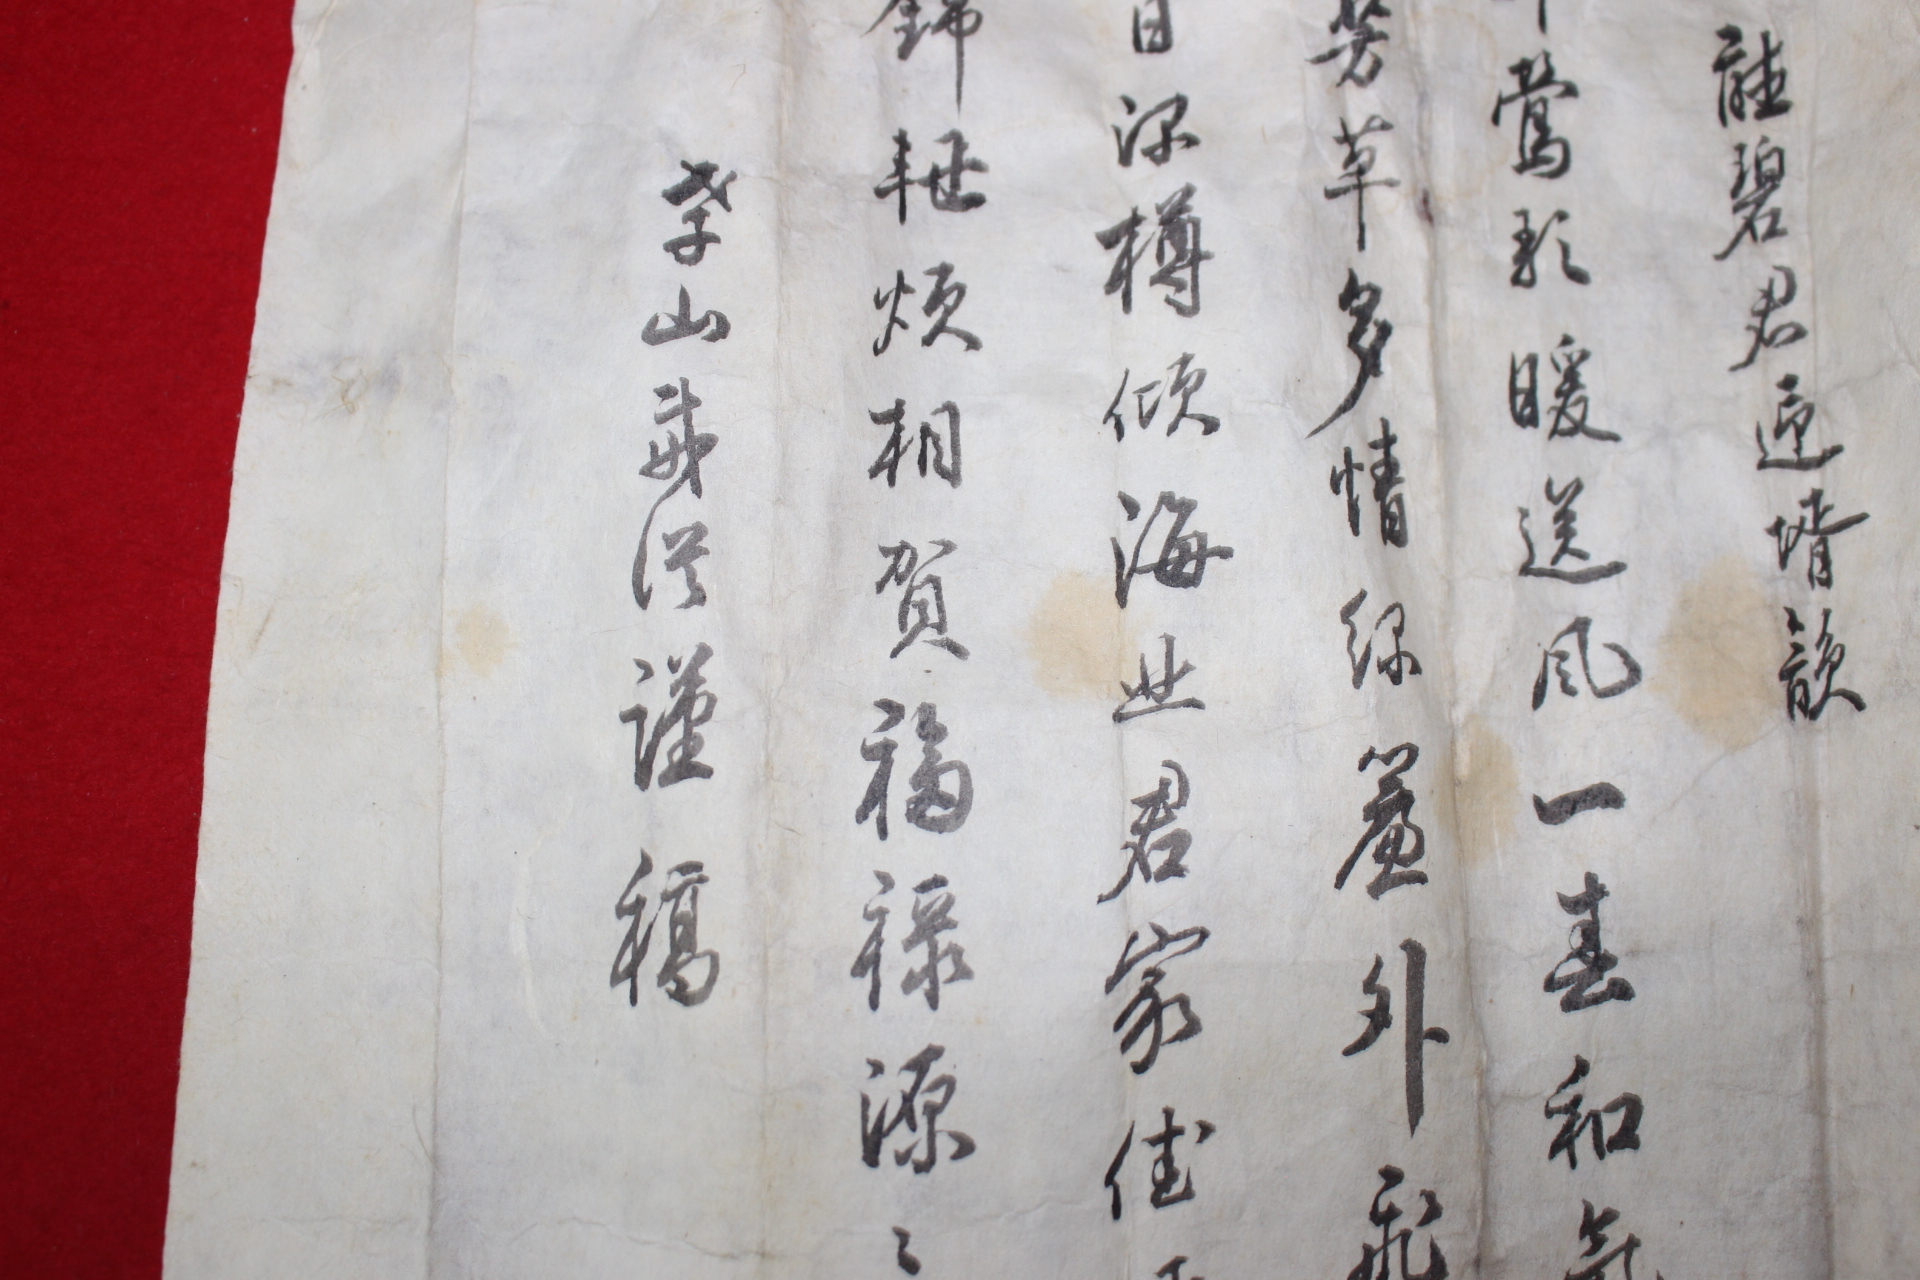 碧君迎壻韻
鶯歌暖送風一春和氣
芳草多情綠簾外飛
日深樽傾海此君家佳
錦軸煩相賀福祿源〻
山 謹稿